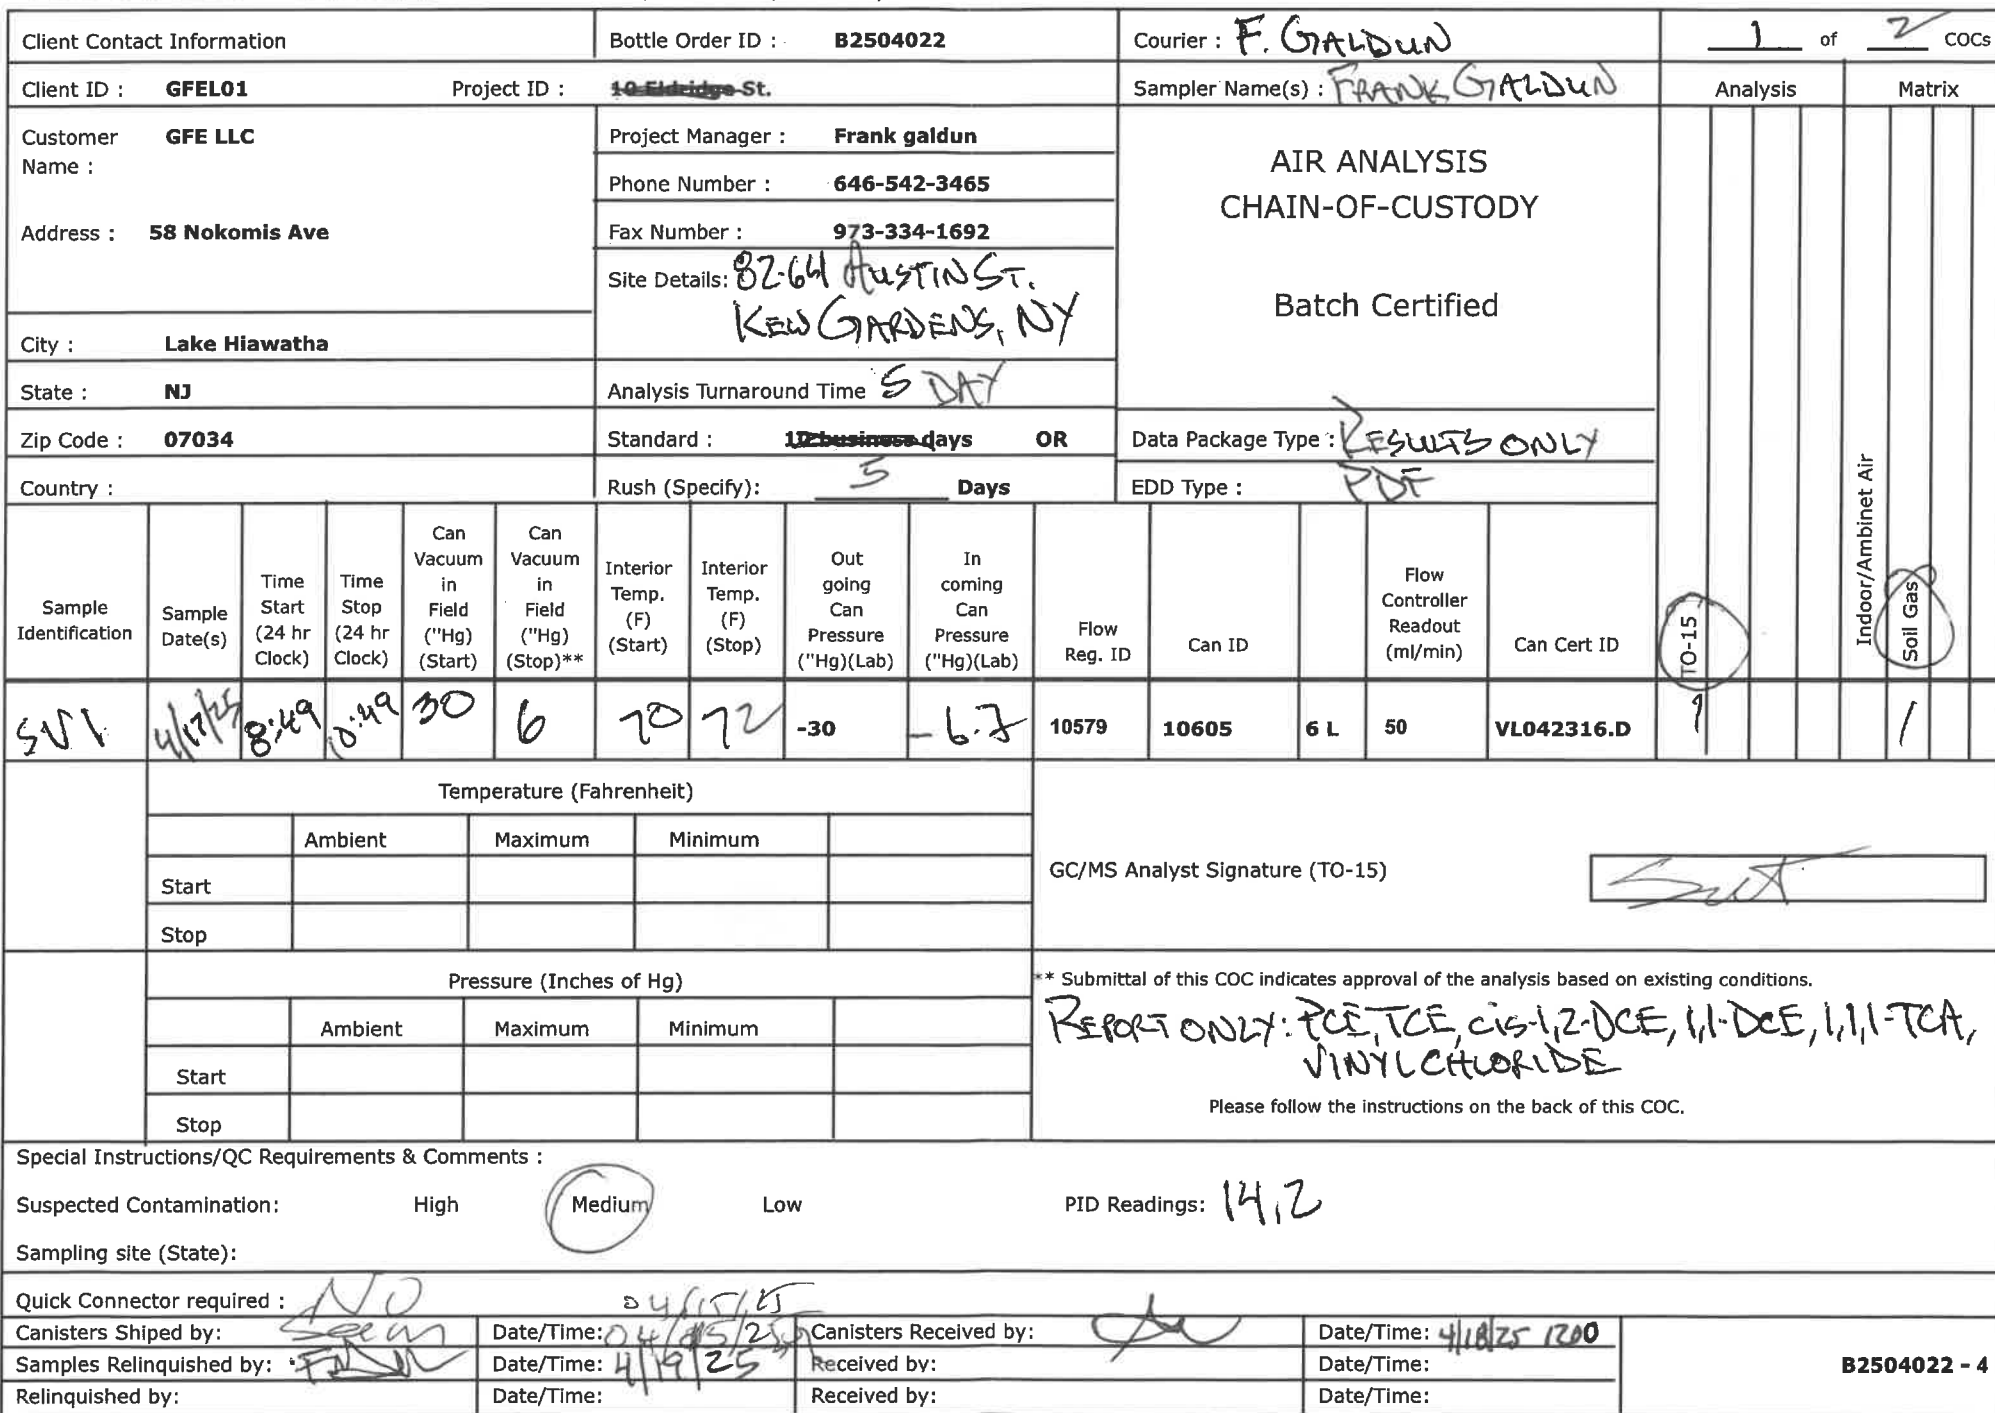 Client Contact Information
Bottle Order ID : B2504022
Courier : F. GALDUN
1 of 2 COCs
Client ID : GFEL01 Project ID : 10 Eldridge St.
Sampler Name(s) : FRANK GALDUN
Analysis Matrix
Customer Name : GFE LLC
Address : 58 Nokomis Ave
City : Lake Hiawatha
State : NJ
Zip Code : 07034
Country :
Project Manager : Frank galdun
Phone Number : 646-542-3465
Fax Number : 973-334-1692
Site Details: 82-64 AUSTIN ST.
KEW GARDENS, NY
Analysis Turnaround Time 5 DAY
Standard : business days OR
Rush (Specify): 5 Days
AIR ANALYSIS
CHAIN-OF-CUSTODY
Batch Certified
Data Package Type : RESULTS ONLY
EDD Type : PDF
Sample Identification
Sample Date(s)
Time Start (24 hr Clock)
Time Stop (24 hr Clock)
Can Vacuum in Field ("Hg) (Start)
Can Vacuum in Field ("Hg) (Stop)**
Interior Temp. (F) (Start)
Interior Temp. (F) (Stop)
Out going Can Pressure ("Hg)(Lab)
In coming Can Pressure ("Hg)(Lab)
Flow Reg. ID
Can ID
Flow Controller Readout (ml/min)
Can Cert ID
TO-15
Indoor/Ambinet Air
Soil Gas
SV1 4/17/25 8:49 10:49 30 6 70 72 -30 -6.7 10579 10605 6 L 50 VL042316.D 1 /
Temperature (Fahrenheit)
Ambient Maximum Minimum
Start
Stop
GC/MS Analyst Signature (TO-15)
Pressure (Inches of Hg)
Ambient Maximum Minimum
Start
Stop
** Submittal of this COC indicates approval of the analysis based on existing conditions.
REPORT ONLY: PCE, TCE, cis-1,2-DCE, 1,1-DCE, 1,1,1-TCA,
VINYL CHLORIDE
Please follow the instructions on the back of this COC.
Special Instructions/QC Requirements & Comments :
Suspected Contamination: High Medium Low PID Readings: 14.2
Sampling site (State):
Quick Connector required : NO 04/15/25
Canisters Shiped by: Date/Time: 04/15/25 Canisters Received by: Date/Time: 4/18/25 1200
Samples Relinquished by: Date/Time: 4/19/25 Received by: Date/Time:
B2504022 - 4
Relinquished by: Date/Time: Received by: Date/Time: